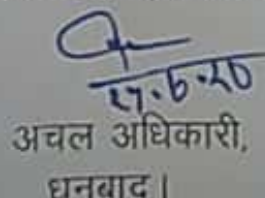 27.6.20
अचल अधिकारी,
धनबाद।